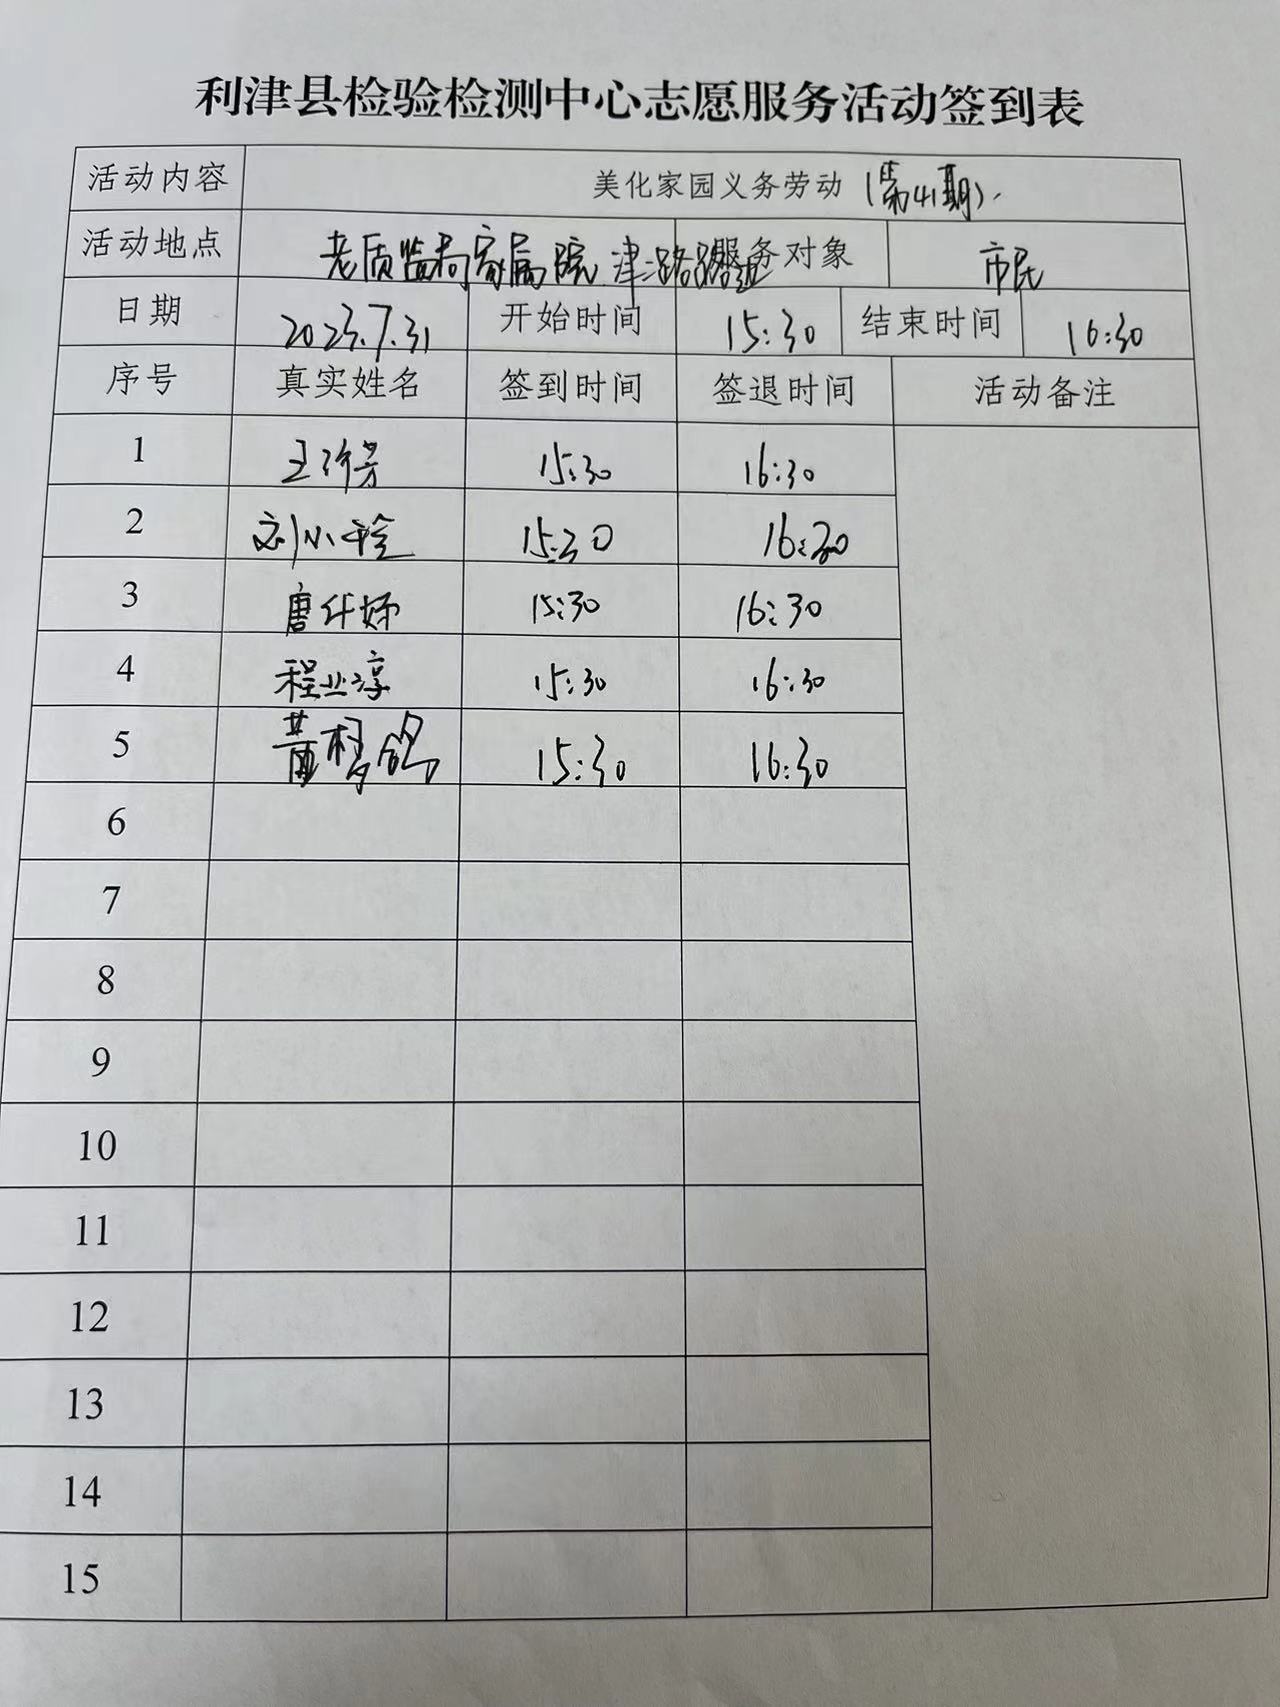 利津县检验检测中心志愿服务活动签到表
活动内容 美化家园义务劳动（第41期）.
活动地点 老质监局家属院 津 路路 服务对象 市民
日期 2023.7.31 开始时间 15:30 结束时间 16:30
序号 真实姓名 签到时间 签退时间 活动备注
1 王 芳 15:30 16:30
2 刘小 15:30 16:30
3 唐 15:30 16:30
4 程业淳 15:30 16:30
5 黄 鸽 15:30 16:30
6
7
8
9
10
11
12
13
14
15